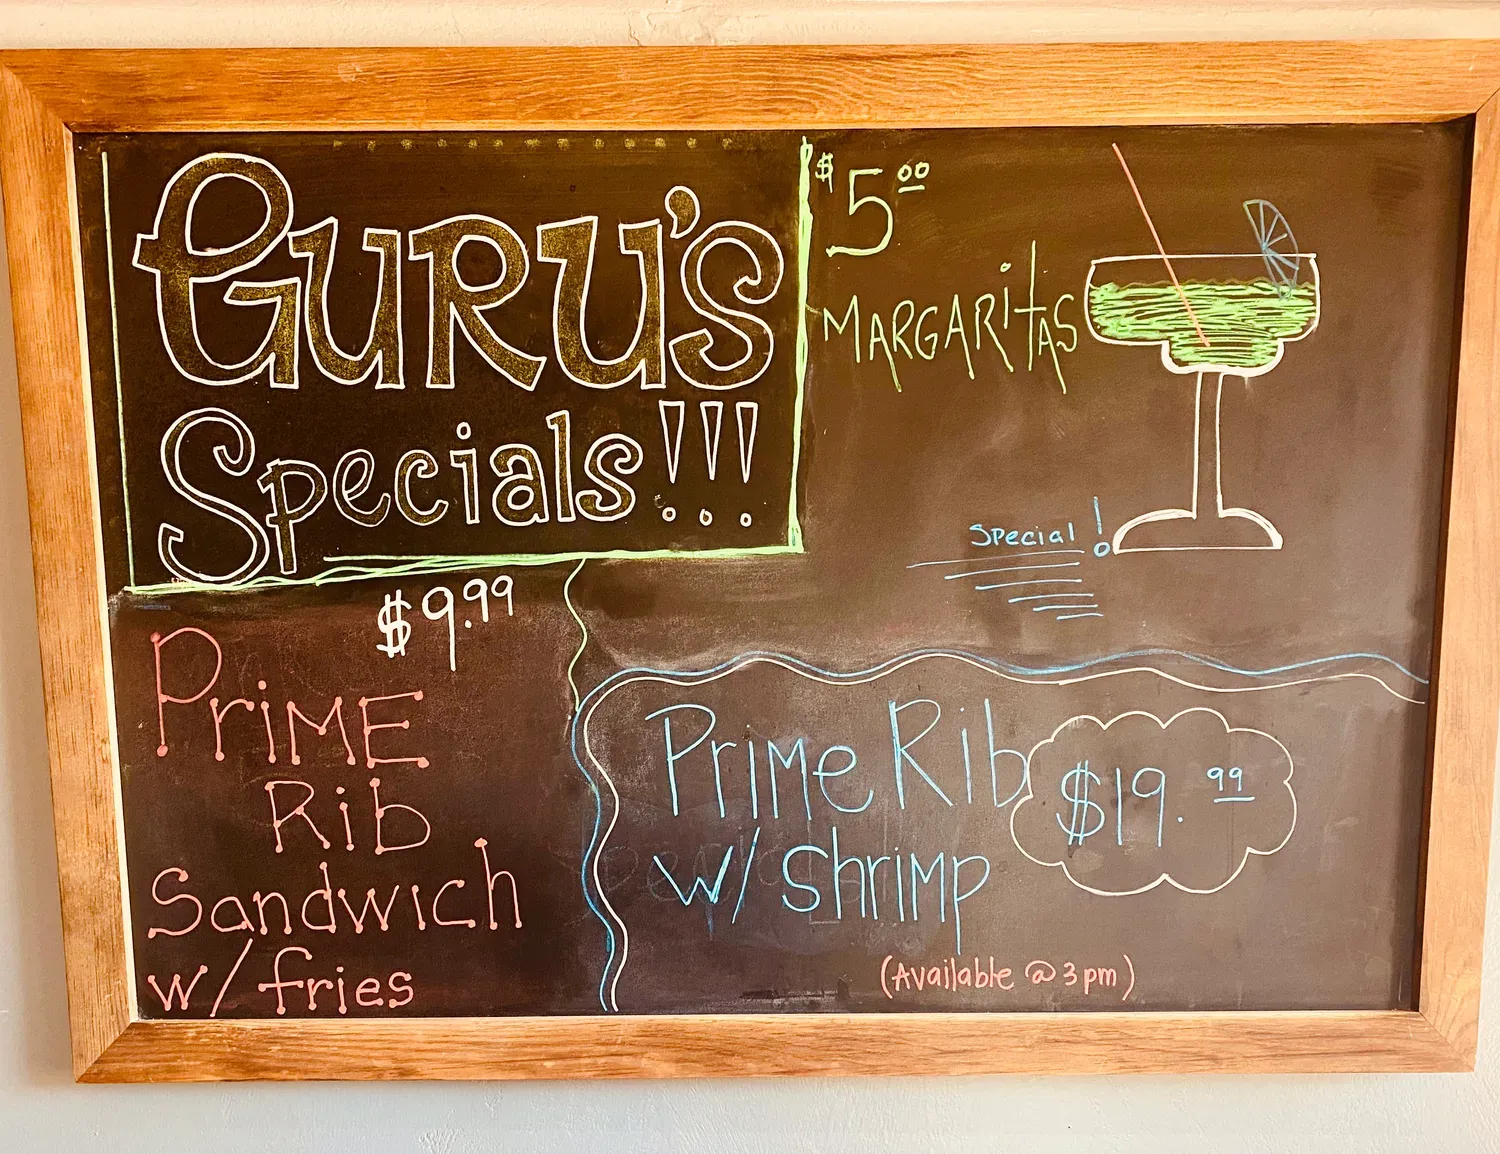 GURU'S
Specials!!!
$5.00
MARGARITAS
Special!
$9.99
PRIME
Rib
Sandwich
w/ fries
Prime Rib
w/ shrimp
$19.99
(Available @ 3pm)